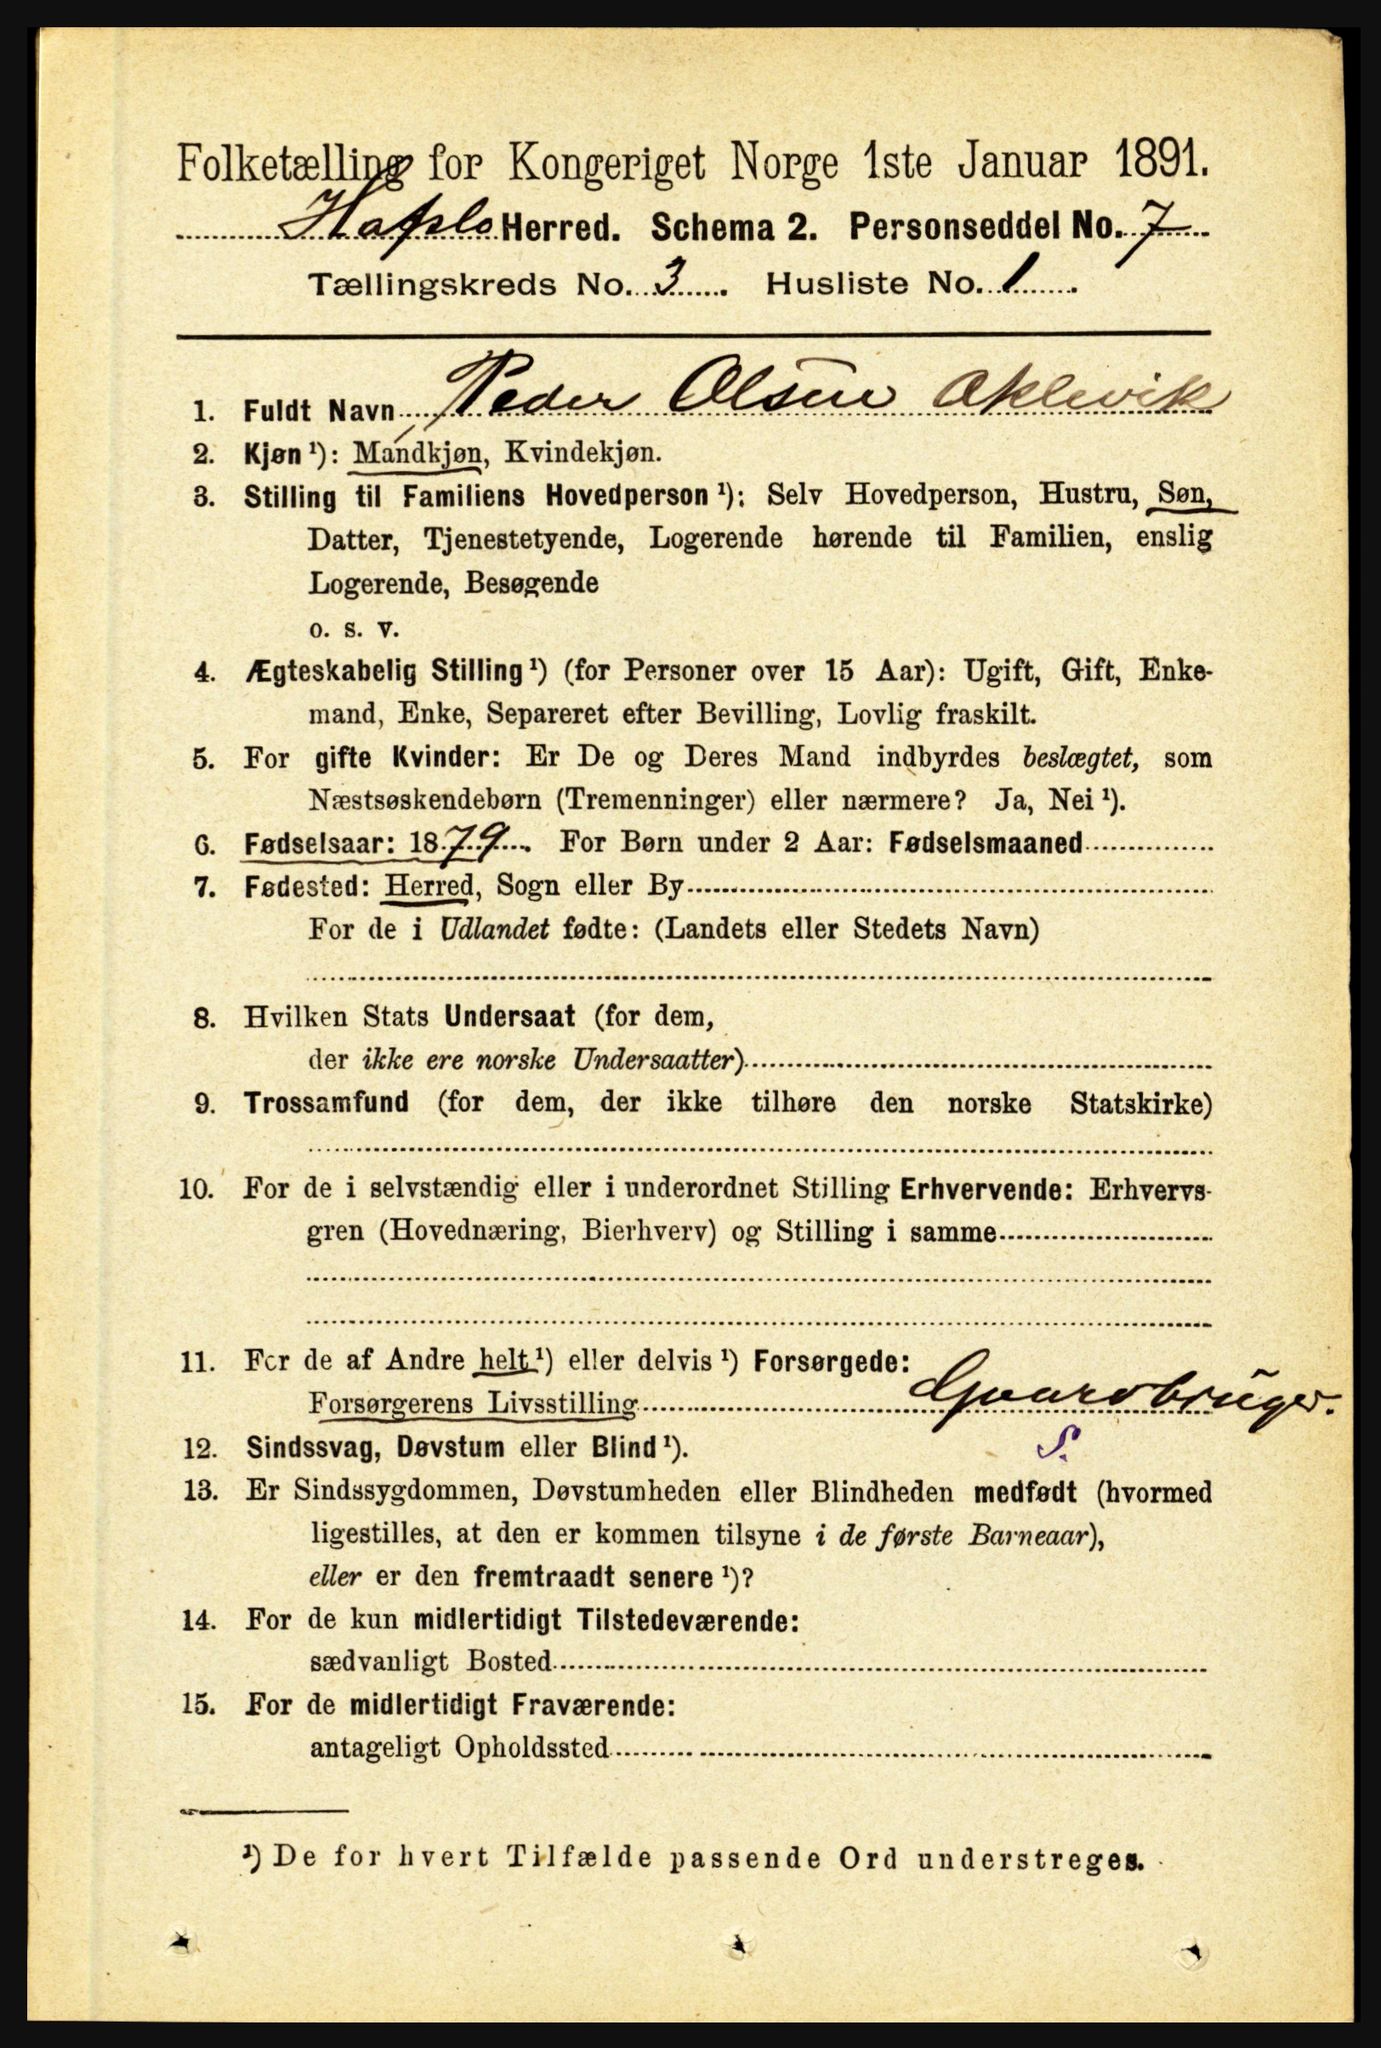 Folketælling for Kongeriget Norge 1ste Januar 1891.
Hafslo Herred. Schema 2. Personseddel No. 7
Tællingskreds No. 3. Husliste No. 1.
1. Fuldt Navn Peder Olsen Oklevik
2. Kjøn¹): Mandkjøn, Kvindekjøn.
3. Stilling til Familiens Hovedperson¹): Selv Hovedperson, Hustru, Søn,
Datter, Tjenestetyende, Logerende hørende til Familien, enslig
Logerende, Besøgende
o. s. v.
4. Ægteskabelig Stilling¹) (for Personer over 15 Aar): Ugift, Gift, Enke-
mand, Enke, Separeret efter Bevilling, Lovlig fraskilt.
5. For gifte Kvinder: Er De og Deres Mand indbyrdes beslægtet, som
Næstsøskendebørn (Tremenninger) eller nærmere? Ja, Nei¹).
6. Fødselsaar: 1879. For Børn under 2 Aar: Fødselsmaaned
7. Fødested: Herred, Sogn eller By
For de i Udlandet fødte: (Landets eller Stedets Navn)
8. Hvilken Stats Undersaat (for dem,
der ikke ere norske Undersaatter)
9. Trossamfund (for dem, der ikke tilhøre den norske Statskirke)
10. For de i selvstændig eller i underordnet Stilling Erhvervende: Erhvervs-
gren (Hovednæring, Bierhverv) og Stilling i samme
11. For de af Andre helt¹) eller delvis¹) Forsørgede:
Forsørgerens Livsstilling Gaardbruger.
12. Sindssvag, Døvstum eller Blind¹). S.
13. Er Sindssygdommen, Døvstumheden eller Blindheden medfødt (hvormed
ligestilles, at den er kommen tilsyne i de første Barneaar),
eller er den fremtraadt senere¹)?
14. For de kun midlertidigt Tilstedeværende:
sædvanligt Bosted
15. For de midlertidigt Fraværende:
antageligt Opholdssted
¹) De for hvert Tilfælde passende Ord understreges.